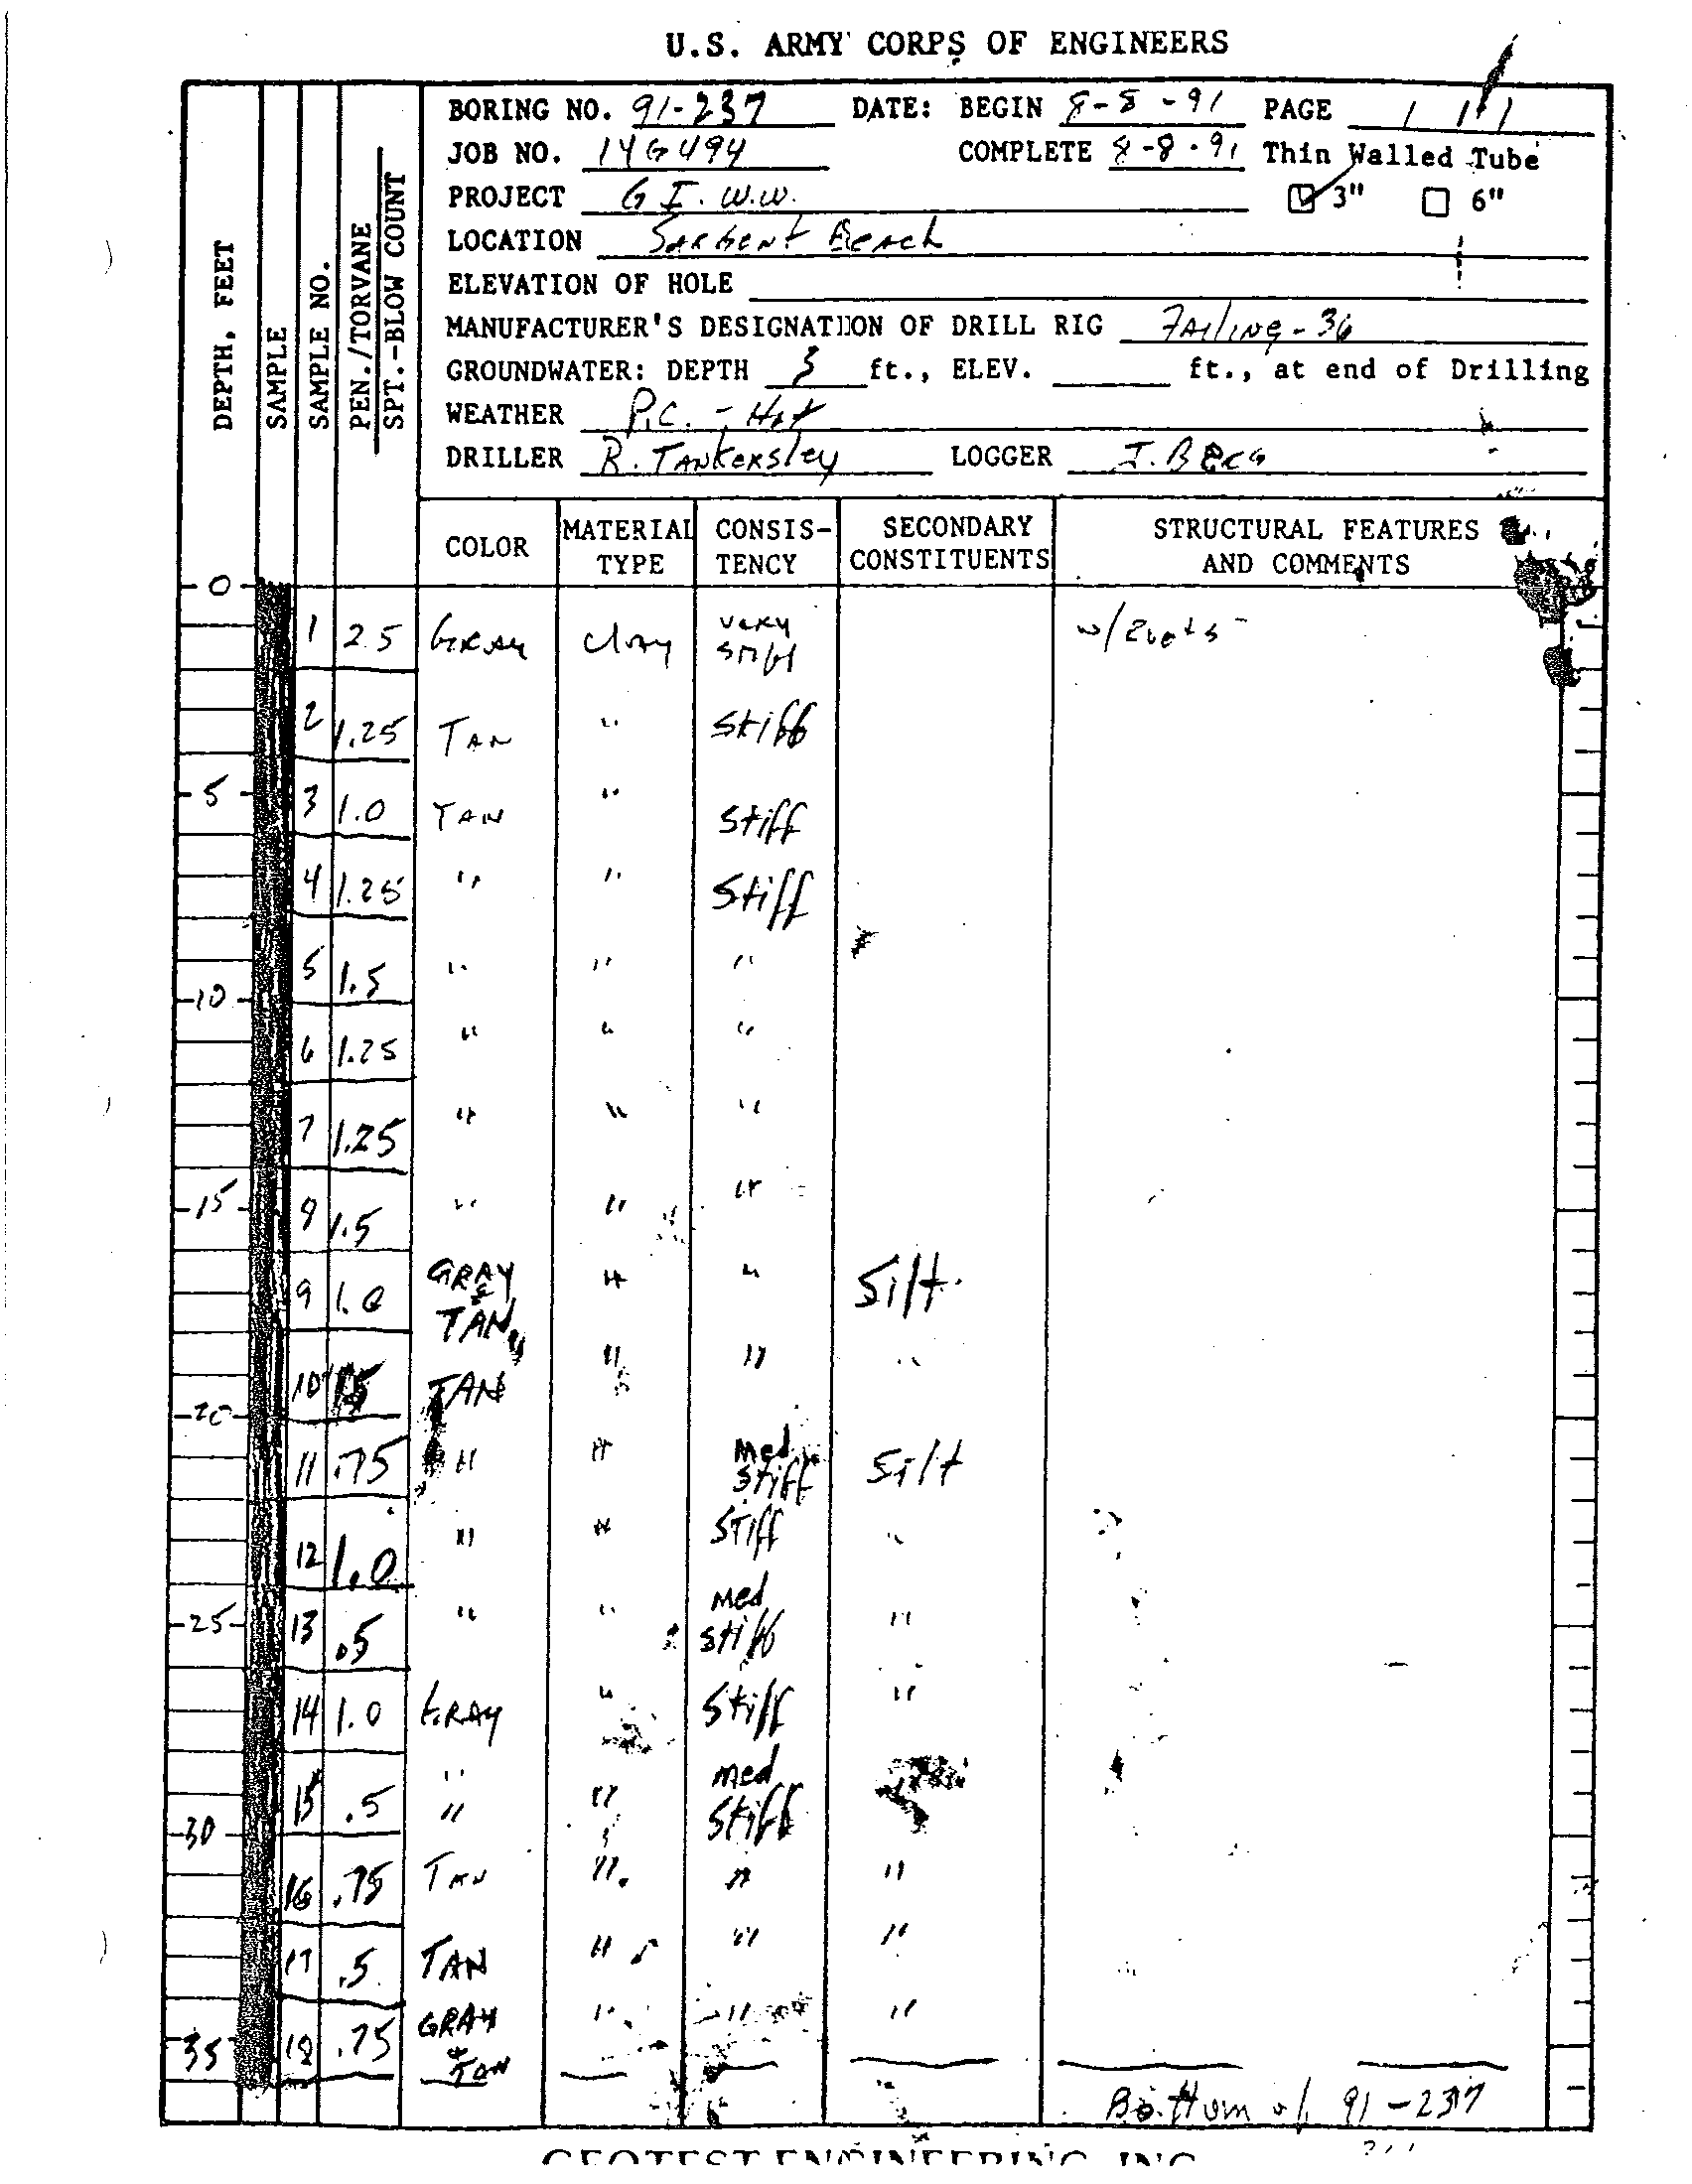 U.S. ARMY CORPS OF ENGINEERS
BORING NO. 91-237 DATE: BEGIN 8-8-91 PAGE 1 of 1
JOB NO. 14G494 COMPLETE 8-8-91 Thin Walled Tube
PROJECT G I. W.W. 3" 6"
LOCATION Sargent Beach
ELEVATION OF HOLE
MANUFACTURER'S DESIGNATION OF DRILL RIG Failing-36
GROUNDWATER: DEPTH 3 ft., ELEV. ft., at end of Drilling
WEATHER P.C. - Hot
DRILLER R. Tankersley LOGGER J. Berg
DEPTH, FEET SAMPLE SAMPLE NO. PEN./TORVANE SPT.-BLOW COUNT
COLOR MATERIAL TYPE CONSISTENCY SECONDARY CONSTITUENTS STRUCTURAL FEATURES AND COMMENTS
0
1 2.5 GRAY Clay very stiff w/
2 1.25 TAN " stiff
5 3 1.0 TAN " stiff
4 1.25 " " stiff
5 1.5 " " "
10
6 1.25 " " "
7 1.25 " " "
15 8 1.5 " " "
9 1.0 GRAY & TAN " " Silt
10 TAN " " "
20
11 .75 " " Med stiff Silt
12 1.0 " " STIFF "
25 13 .5 " " Med stiff "
14 1.0 GRAY " stiff "
15 .5 " " med stiff
30
16 .75 TAN " " "
17 .5 TAN " " "
35 18 .75 GRAY & TAN " " "
Bottom of 91-237
GEOTEST ENGINEERING INC